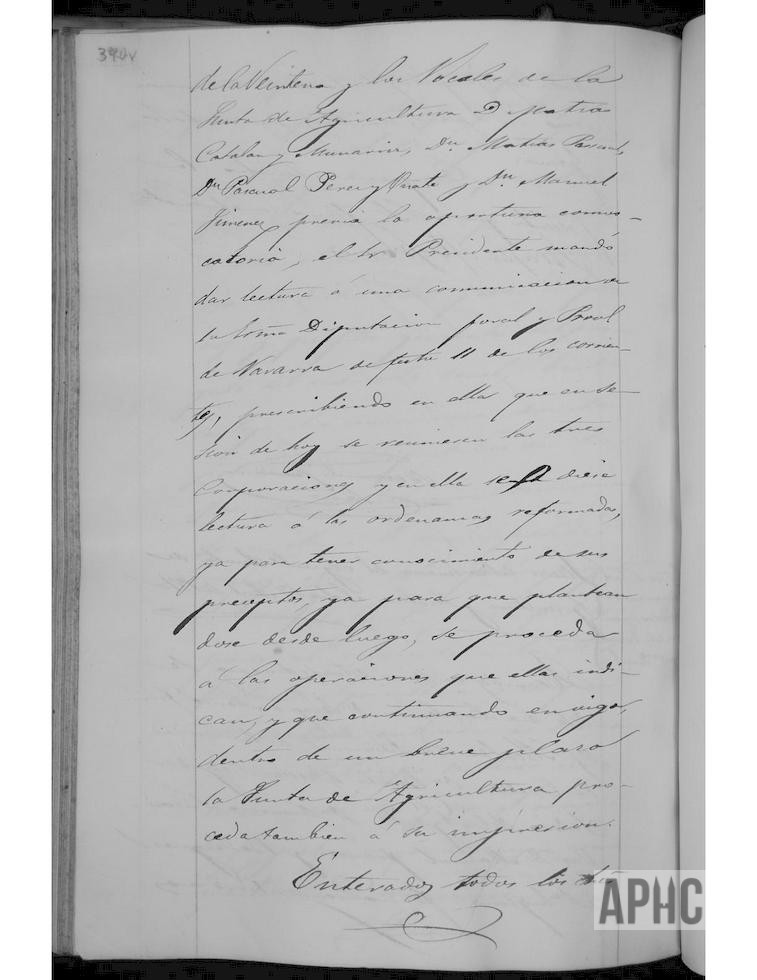 390v
de la Veintena y los Vocales de la
Junta de Agricultura D.
Catalan y Munarriz, Dn. Matias Pascual,
Dn. Pascual Perez y Oñate y Dn. Manuel
Jimenez previa la oportuna convo-
catoria, el Sr. Presidente mandó
dar lectura á una comunicacion de
la Exma Diputacion foral y Provl
de Navarra de fecha 11 de los corrien-
tes, prescribiendo en ella que en se-
sion de hoy se reuniesen las tres
Corporaciones y en ella se diese
lectura á las ordenanzas reformadas,
ya para tener conocimiento de sus
preceptos, ya para que plantean
dose desde luego, se proceda
á las operaciones que ellas indi-
can, y que continuando en vigor,
dentro de un breve plazo
la Junta de Agricultura pro-
ceda tambien á su impresion.
Enterados todos los
APHC